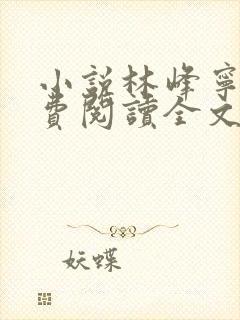 小說林峰寧
費閱讀全文
妖蝶